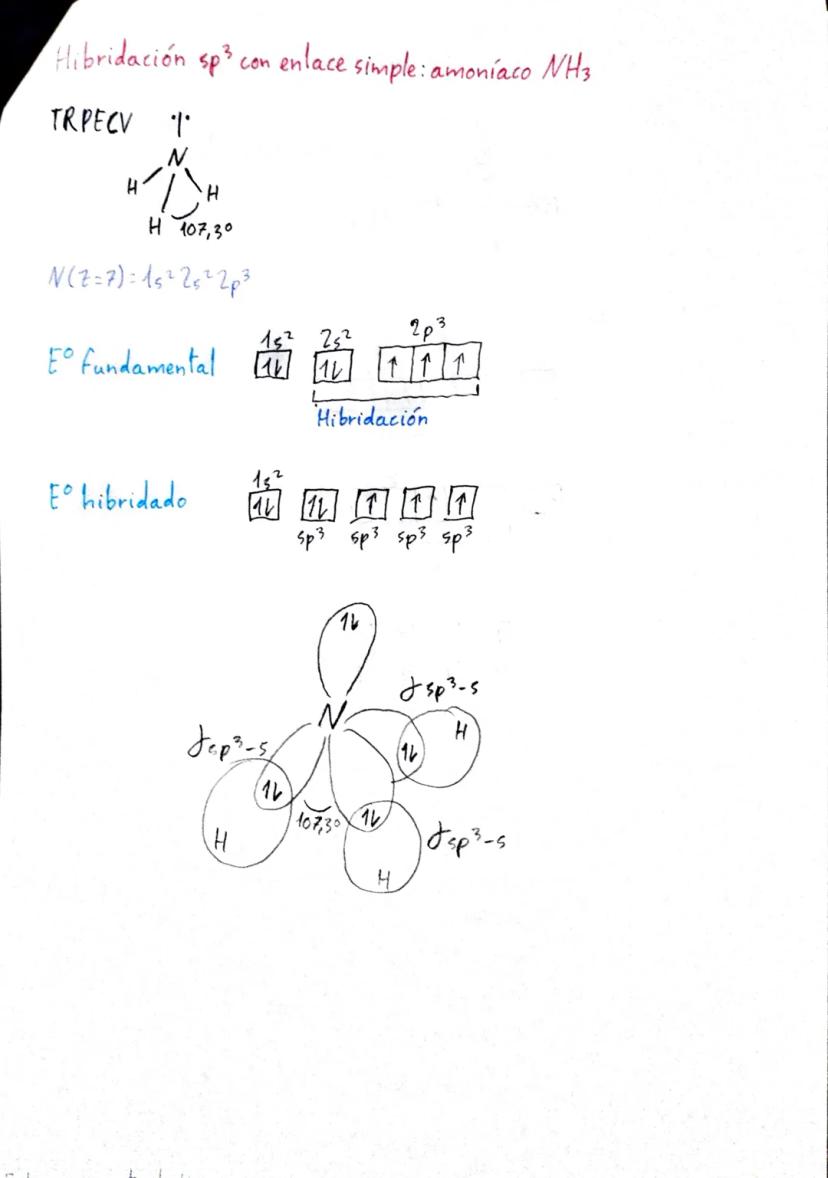 Hibridación sp³ con enlace simple: amoníaco NH₃
TRPECV
N
H H
H 107,3°
N(Z=7)=1s² 2s² 2p³
1s² 2s² 2p³
Eº fundamental 1⇂ 1⇂ ↑ ↑ ↑
Hibridación
1s²
Eº hibridado 1⇂ 1⇂ ↑ ↑ ↑
sp³ sp³ sp³ sp³
1⇂
σsp³-s
N
H
σsp³-s
1⇂
1⇂
107,3° 1⇂
H
σsp³-s
H